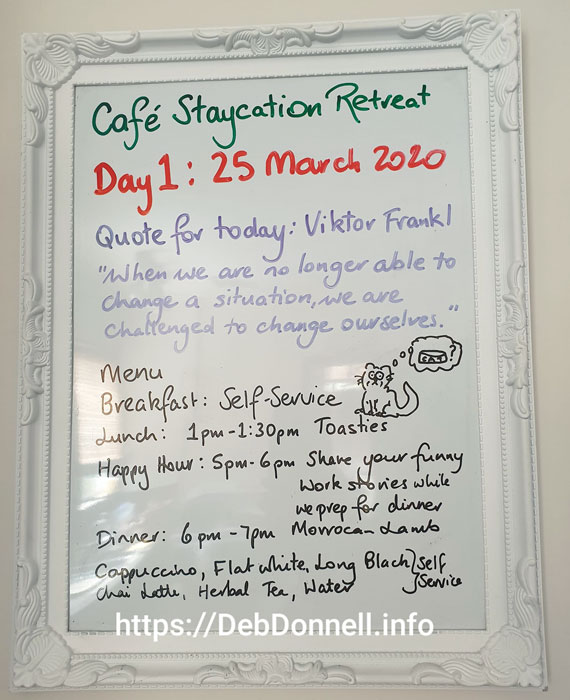 Café Staycation Retreat
Day 1: 25 March 2020
Quote for today: Viktor Frankl
"When we are no longer able to
change a situation, we are
challenged to change ourselves."
CAT ?
Menu
Breakfast: Self-Service
Lunch: 1pm-1:30pm Toasties
Happy Hour: 5pm-6pm Share your funny
work stories while
we prep for dinner
Dinner: 6pm-7pm Morrocan Lamb
Cappuccino, Flat White, Long Black } Self
Chai Latte, Herbal Tea, Water } Service
https://DebDonnell.info